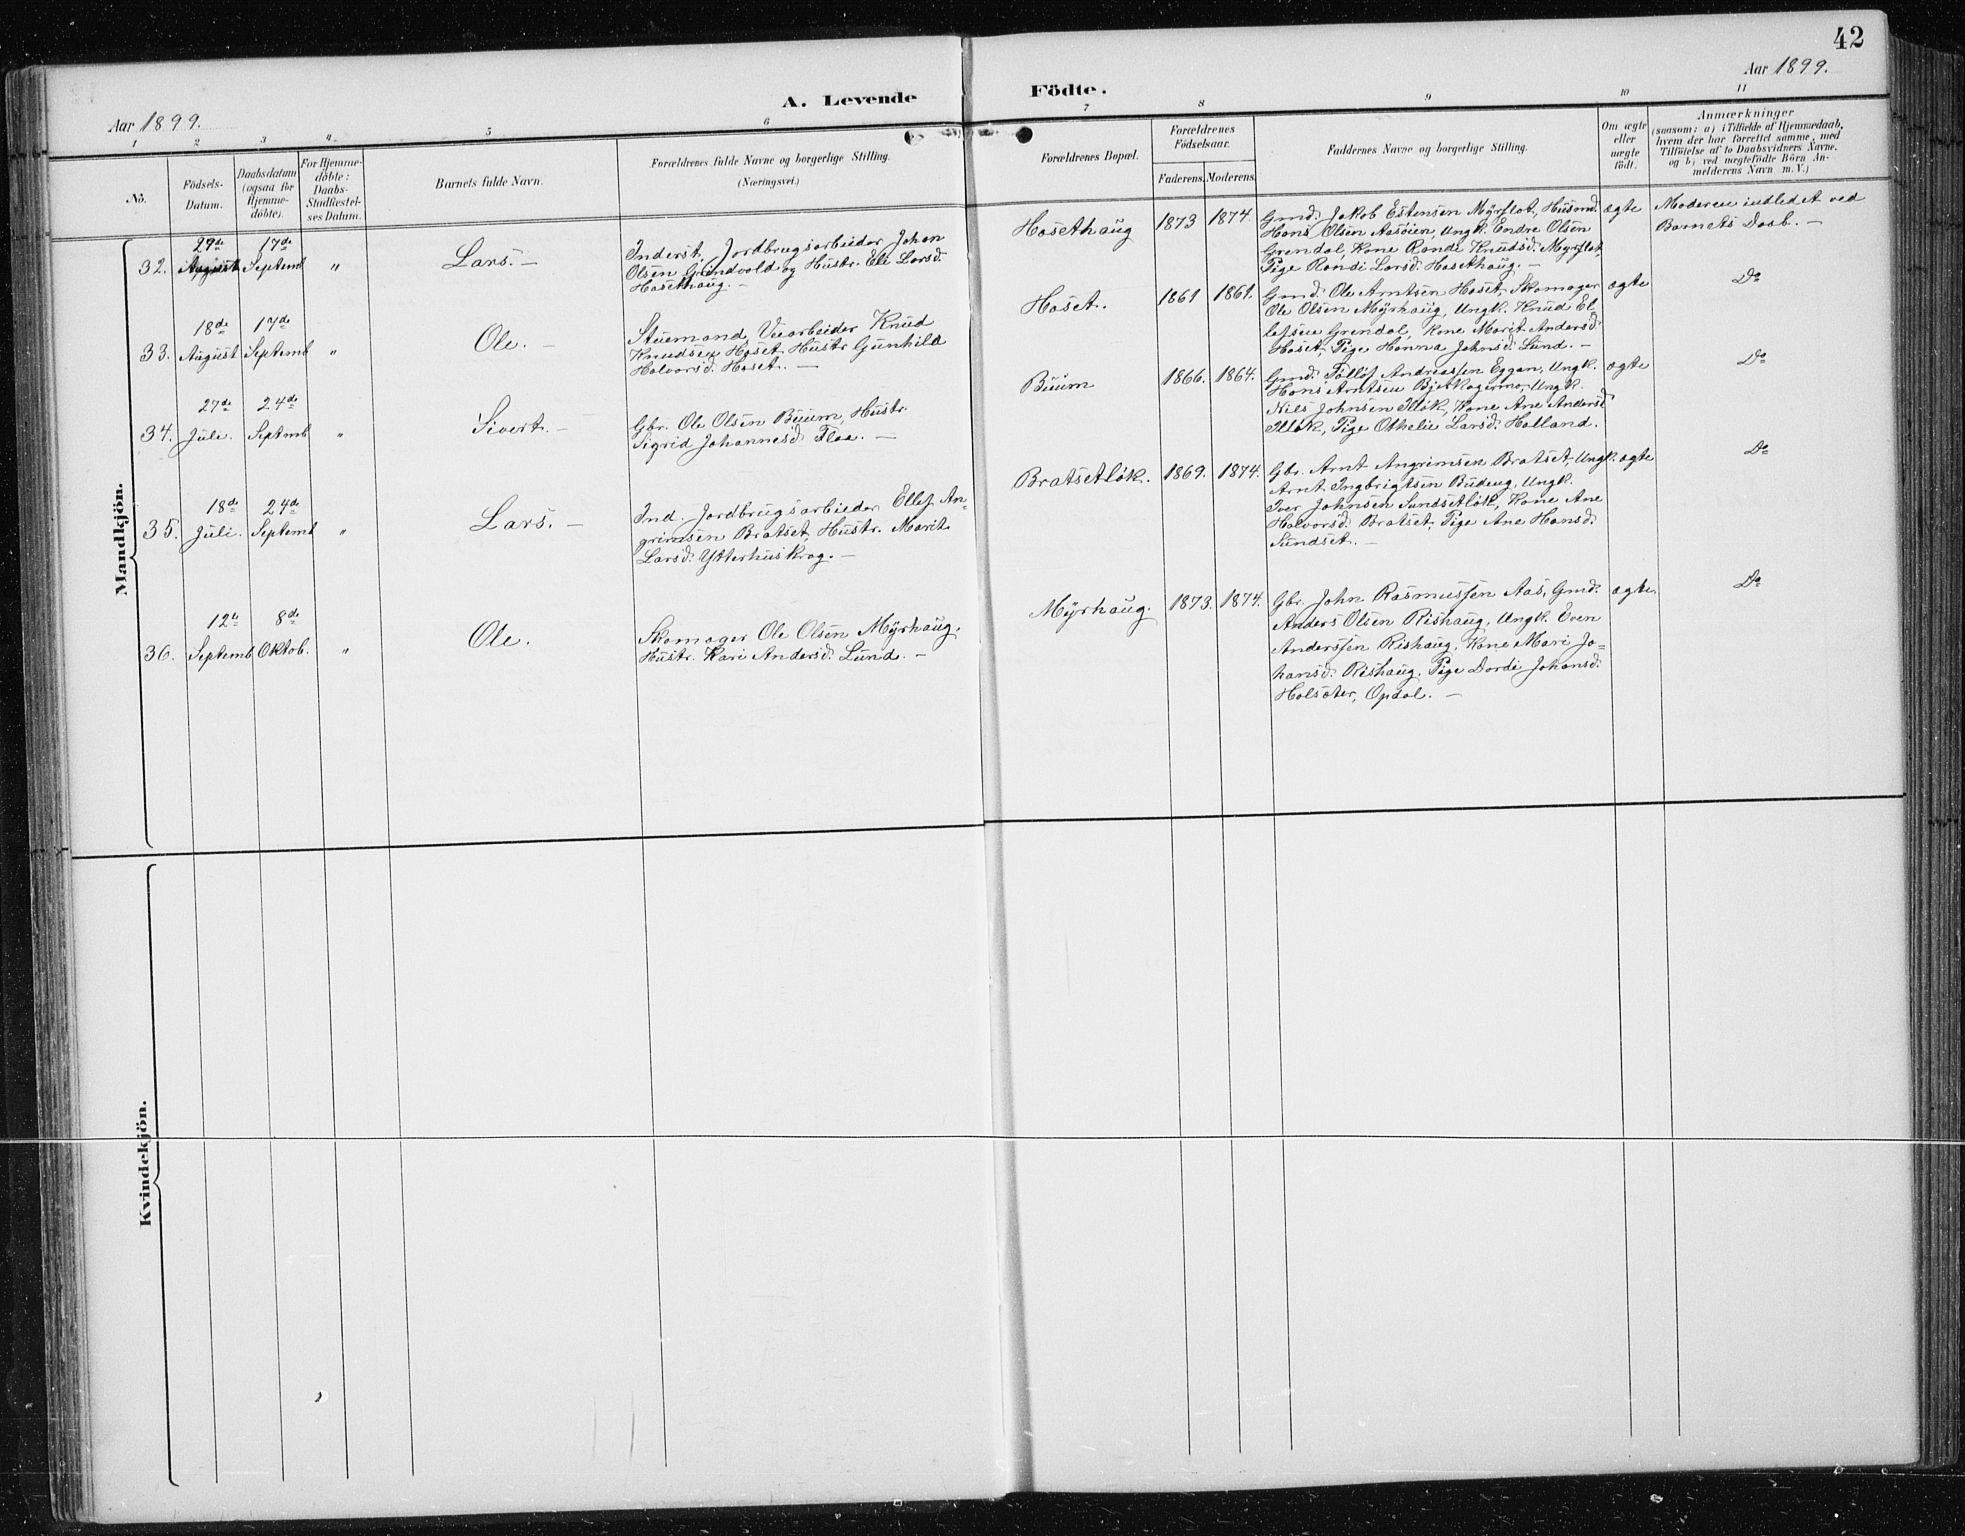 42
Aar 1899.
Aar 1899.
A. Levende
Födte.
1
2
3
4
5
6
7
8
9
10
11
No.
Födsels-
Datum.
Daabsdatum
(ogsaa for
Hjemme-
döbte).
For Hjemme-
döbte:
Daabs-
Stadfæstel-
ses Datum.
Barnets fulde Navn.
Forældrenes fulde Navne og borgerlige Stilling.
(Næringsvei.)
Forældrenes Bopæl.
Forældrenes
Födselsaar.
Faderens.
Moderens.
Faddernes Navne og borgerlige Stilling.
Om ægte
eller
uægte
födt.
Anmærkninger
(saasom: a) i Tilfælde af Hjemmedaab,
hvem der har forrettet samme, med
Tilföielse af to Daabsvidners Navne,
og b) ved uægtefödte Börn An-
melderens Navn m. V.)
Mandkjön.
32.
29de
August
17de
Septemb
"
Lars. —
Inderst. Jordbrugsarbeider Johan
Olsen Grindvold og Hustr. Eli Larsd.
Hosethaug. —
Hosethaug
1873
1874.
Gmd. Jakob Estensen Myrslot, Husmd.
Hans Olsen Aasöien, Ungk. Endre Olsen
Grendal, Kone Rande Knudsd. Myrslot,
Pige Randi Larsd. Hosethaug. —
ægte
Moderen indledet ved
Barnets Daab. —
33.
18de
August
17de
Septemb
"
Ole. —
Stuemand, Veiarbeider Knud
Knudsen Hoset, Hustr. Gunhild
Halvorsd. Hoset. —
Hoset.
1861
1861.
Gmd. Ole Arntsen Hoset, Skomager
Ole Olsen Myrhaug, Ungk. Knud El-
lefsen Grendal, Kone Marit Andersd.
Hoset, Pige Hanna Johnsd. Lund. —
ægte
Do
34.
27de
Juli.
24de
Septmb
"
Sivert. —
Gbr. Ole Olsen Buum, Hustr.
Sigrid Johannesd. Flaa. —
Buum
1866.
1864.
Gmd. Tolløf Andreassen Eggan, Ungk.
Hans Arntsen Bjerkagermo, Ungk.
Nils Johnsen Illøk, Kone Ane Andersd.
Illøk, Pige Othelie Larsd. Halland.
ægte
Do
35.
18de
Juli.
24de
Septemb
"
Lars. —
Ind. Jordbrugsarbieder Ellef An-
grimsen Bratset, Hustr. Marit
Larsd. Ytterhuskrog. —
Bratsetløk.
1869.
1874.
Gbr. Arnt Angrimsen Bratset, Ungk.
Arnt Ingbrigtsen Budeng, Ungk.
Iver Johnsen Sundsetløk, Kone Ane
Halvorsd. Bratset, Pige Ane Hansd.
Sundset. —
ægte
Do
36.
12te
Septemb
8de
Oktob.
"
Ole.
Skomager Ole Olsen Myrhaug,
Hustr. Kari Andersd. Lund. —
Myrhaug.
1873.
1874.
Gbr. John Rasmussen Aas, Gmd.
Anders Olsen Rishaug, Ungk. Even
Anderssen Rishaug, Kone Mari Jo-
hansd. Rishaug, Pige Dordi Johansd.
Halsæter, Opdal. —
ægte.
Do
Kvindekjön.